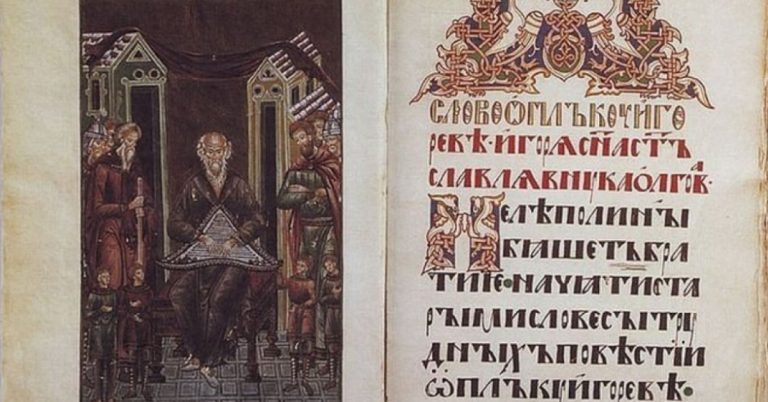 СЛОВО Ѡ ПЛЪКОУ ИГО
РЕВѢ· ИГОРѦ СН҃А СТ҃Ъ
СЛАВЛѦ ВНУКА ОЛГОВⷶ·
НЕ ЛѢПО ЛИ НЫ
БѦШЕТЬ БРА
ТИЕ· НАЧАТИ СТА
РЫМИ СЛОВЕСЫ ТРУ
ДНЫХЪ ПОВѢСТІЙ
Ѡ ПЛЪКУ ИГОРЕВѢ·